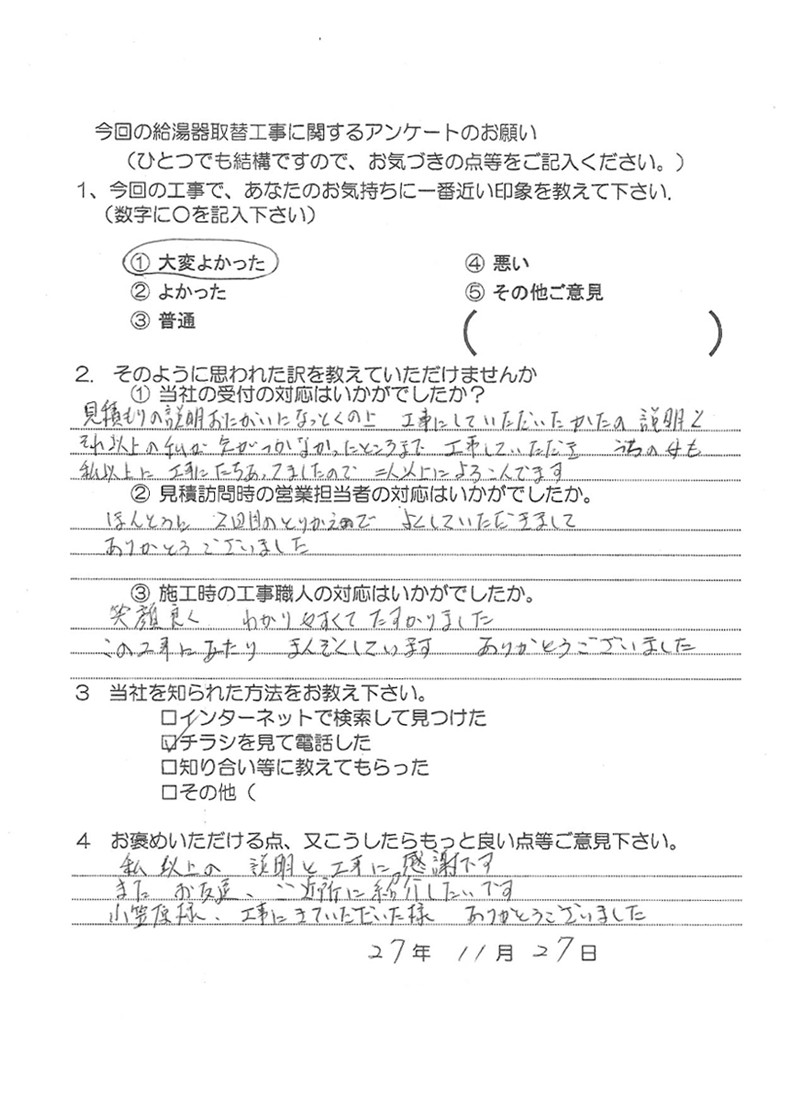 今回の給湯器取替工事に関するアンケートのお願い
（ひとつでも結構ですので、お気づきの点等をご記入ください。）
1、今回の工事で、あなたのお気持ちに一番近い印象を教えて下さい.
（数字に〇を記入下さい）
① 大変よかった
② よかった
③ 普通
④ 悪い
⑤ その他ご意見
（ ）
2. そのように思われた訳を教えていただけませんか
① 当社の受付の対応はいかがでしたか？
見積もりの説明おたがいになっとくの上 工事にしていただいたかたの説明と
それ以上の私が気がつかなかったところまで 工事していただき うちの母も
私以上に 工事にたちあってましたので 二人以上によろこんでます
② 見積訪問時の営業担当者の対応はいかがでしたか。
ほんとうに 2回目のとりかえめで よくしていただきまして
ありがとうございました
③ 施工時の工事職人の対応はいかがでしたか。
笑顔良く わかりやすくて たすかりました
この工事にあたり まんぞくしています ありがとうございました
3 当社を知られた方法をお教え下さい。
□インターネットで検索して見つけた
☑チラシを見て電話した
□知り合い等に教えてもらった
□その他（
4 お褒めいただける点、又こうしたらもっと良い点等ご意見下さい。
私以上の 説明と工事に感謝です
また お友達、ご近所に紹介したいです
小笠原様、工事にきていただいた様 ありがとうございました
27年 11月 27日